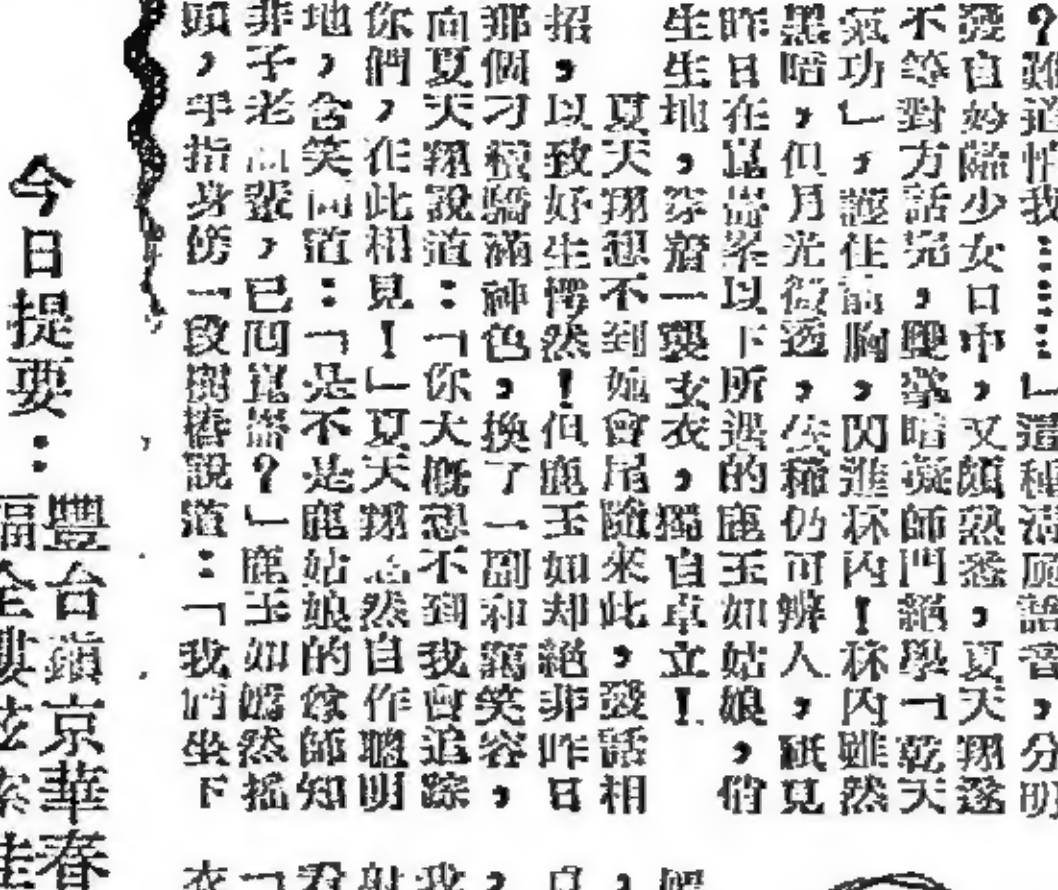 ？難道怕我……」這種清脆語音，分明
發自妙齡少女口中，又頗熟悉，夏天翔遂
不等對方話完，興掌暗凝師門絕學「乾天
氣功」，護住前胸，閃進林內！林內雖然
黑暗，但月光微透，依稀仍可辨人，祇見
昨日在崑崙峯以下所遇的鹿玉如姑娘，俏
生生地，穿着一襲玄衣，獨自卓立！
夏天翔想不到她會尾隨來此，發話相
招，以致好生愕然！但鹿玉如却絕非昨日
那個刁橫驕滿神色，換了一副和藹笑容，
向夏天翔說道：「你大概想不到我會追踪
你們，在此相見！」夏天翔 然自作聰明
地，含笑問道：「是不是鹿姑娘的令師知
非子老前輩，已回崑崙？」鹿玉如嫣然搖
頭，手指身傍一段樹樁說道：「我們坐下
今日提要：
豐台嶺京華春
福全樓 索佳